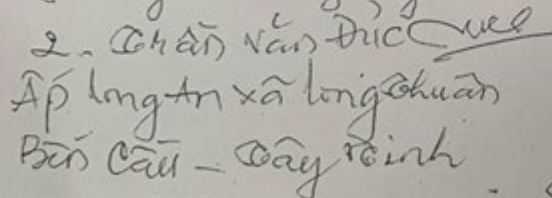 2. Trần Văn Đức
Ấp Long An xã Long Thuận
Bến Cầu - Tây Ninh